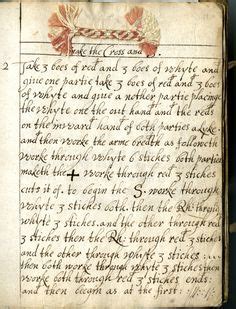 make the Cross and S.
2 Take 3 boes of red and 3 boes of whyte and
giue one partie take 3 boes of red and 3 boes
of whyte and giue a nother partie placeinge
the whyte one the out hand and the reds
on the inward hand of both parties a lyke
and then worke the arme breath as followeth
worke through whyte 6 stiches both parties
maketh the + worke through red 3 stiches
cuts it of. to begin the S. worke through
whyte 3 stiches both. then the Rh: throug
whyte 3 stiches and the other through red
3 stiches then the Rh: through red 3 stiches
and the other through whyte 3 stiches :....
then both worke through whyte 3 stiches then
worke both through red 3 stiches ends:
and then begin as at the first: